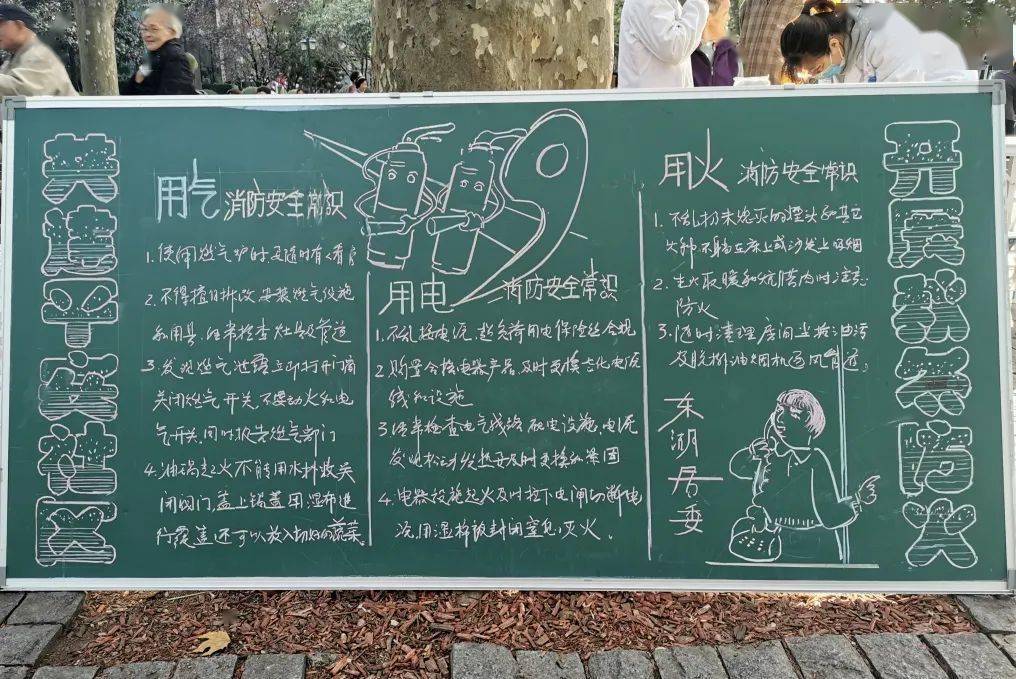 共建平安社区
用气 消防安全常识
1.使用燃气炉时,要随时有人看管
2.不得擅自拆改安装燃气设施
和用具,经常检查灶具及管道
3.发现燃气泄露立即打开门窗
关闭燃气开关,不要动火和电
气开关,同时报告燃气部门
4.油锅起火不能用水扑救关
闭阀门,盖上锅盖,用湿布进
行覆盖还可以放入切好的蔬菜。
用电 消防安全常识
1.不乱接电源,超负荷用电保险丝合规
2.购置合格电器产品,及时更换老化电源
线和设施
3.经常检查电气线路,配电设施,电源
发现松动发热要及时更换和紧固
4.电器设施起火及时拉下电闸切断电
源,用湿棉被封闭窒息,灭火。
用火 消防安全常识
1.不乱扔未熄灭的烟头和其它
火种不躺在床上或沙发上吸烟
2.生火取暖和炕腊肉时注意
防火
3.随时清理房间上油污
及脱排油烟机通风管道
东湖居委
开展秋冬防火